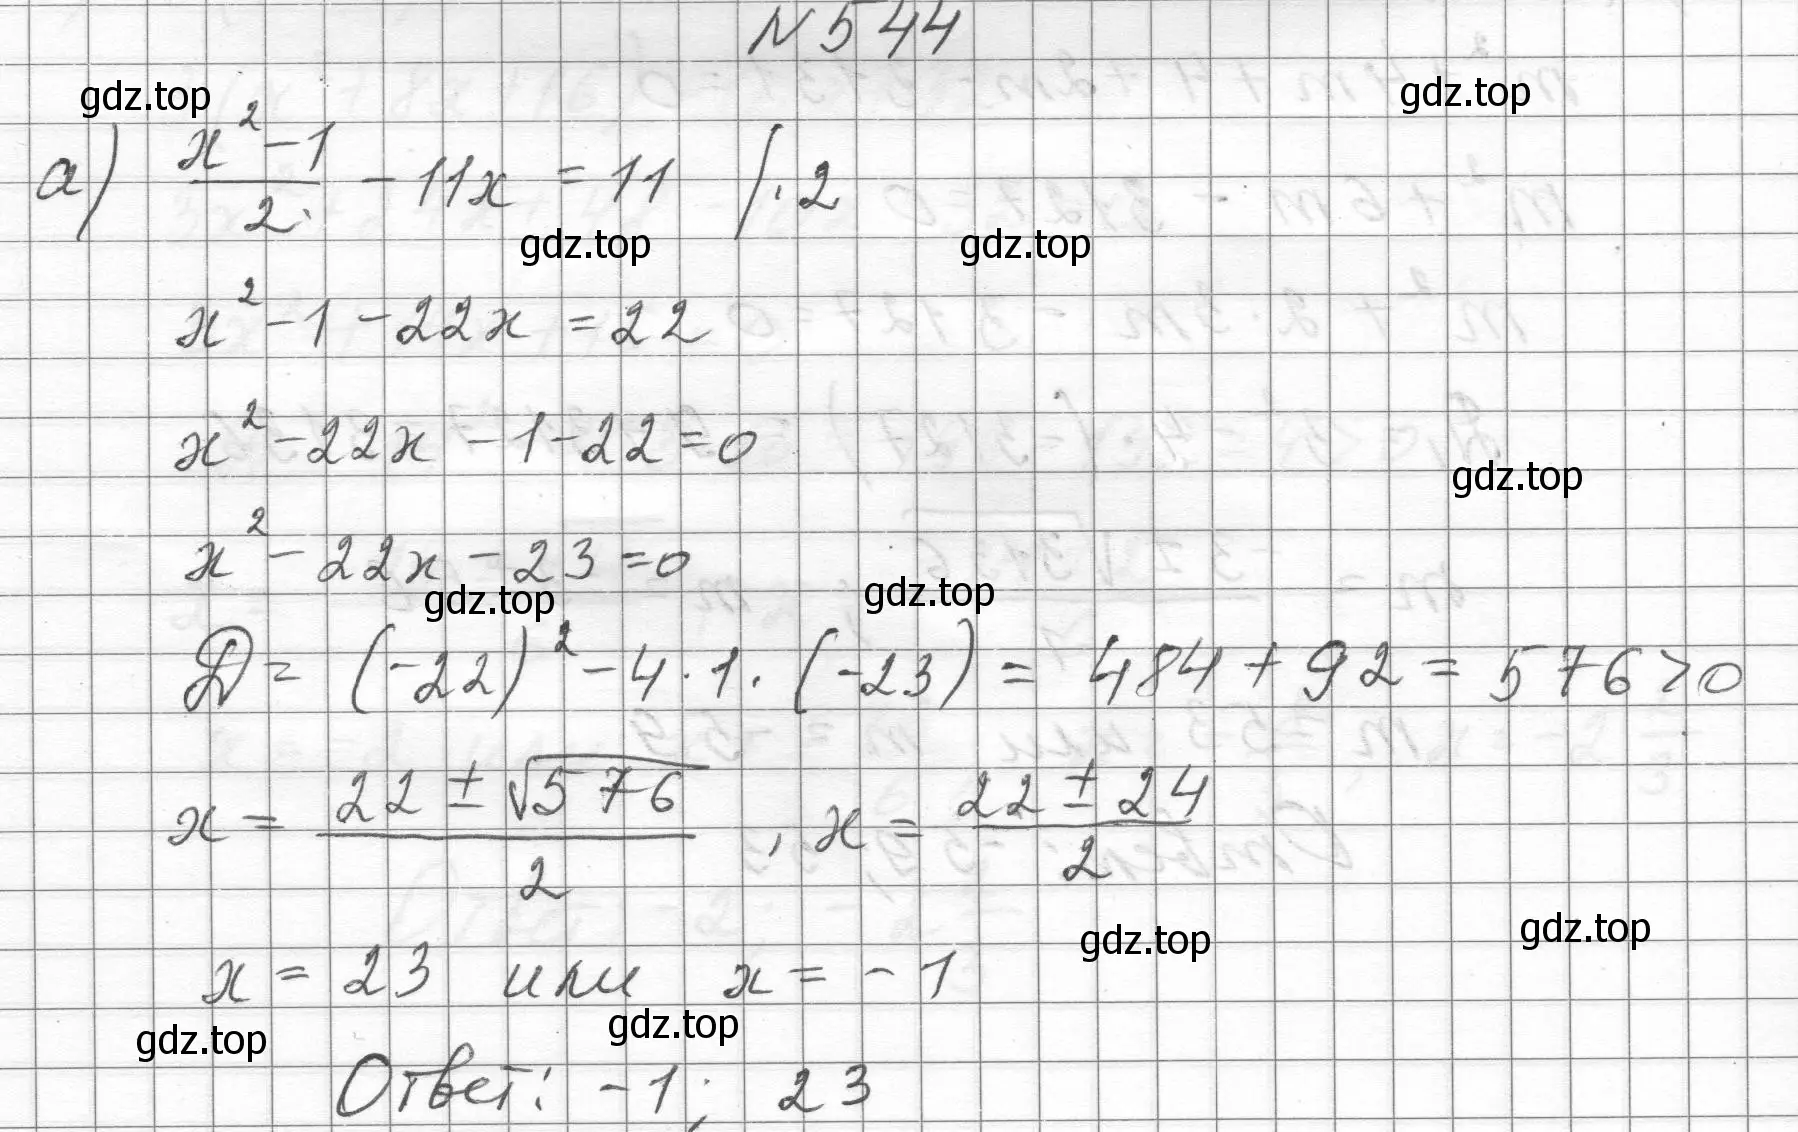 N 544
gdz.top gdz.top
а) (x² - 1)/2 - 11x = 11 / · 2
gdz.top gdz.top
x² - 1 - 22x = 22
x² - 22x - 1 - 22 = 0
gdz.top
x² - 22x - 23 = 0
gdz.top gdz.top
D = (-22)² - 4 · 1 · (-23) = 484 + 92 = 576 > 0
x = (22 ± √576)/2 , x = (22 ± 24)/2
gdz.top gdz.top
x = 23 или x = -1
gdz.top gdz.top
Ответ: -1; 23